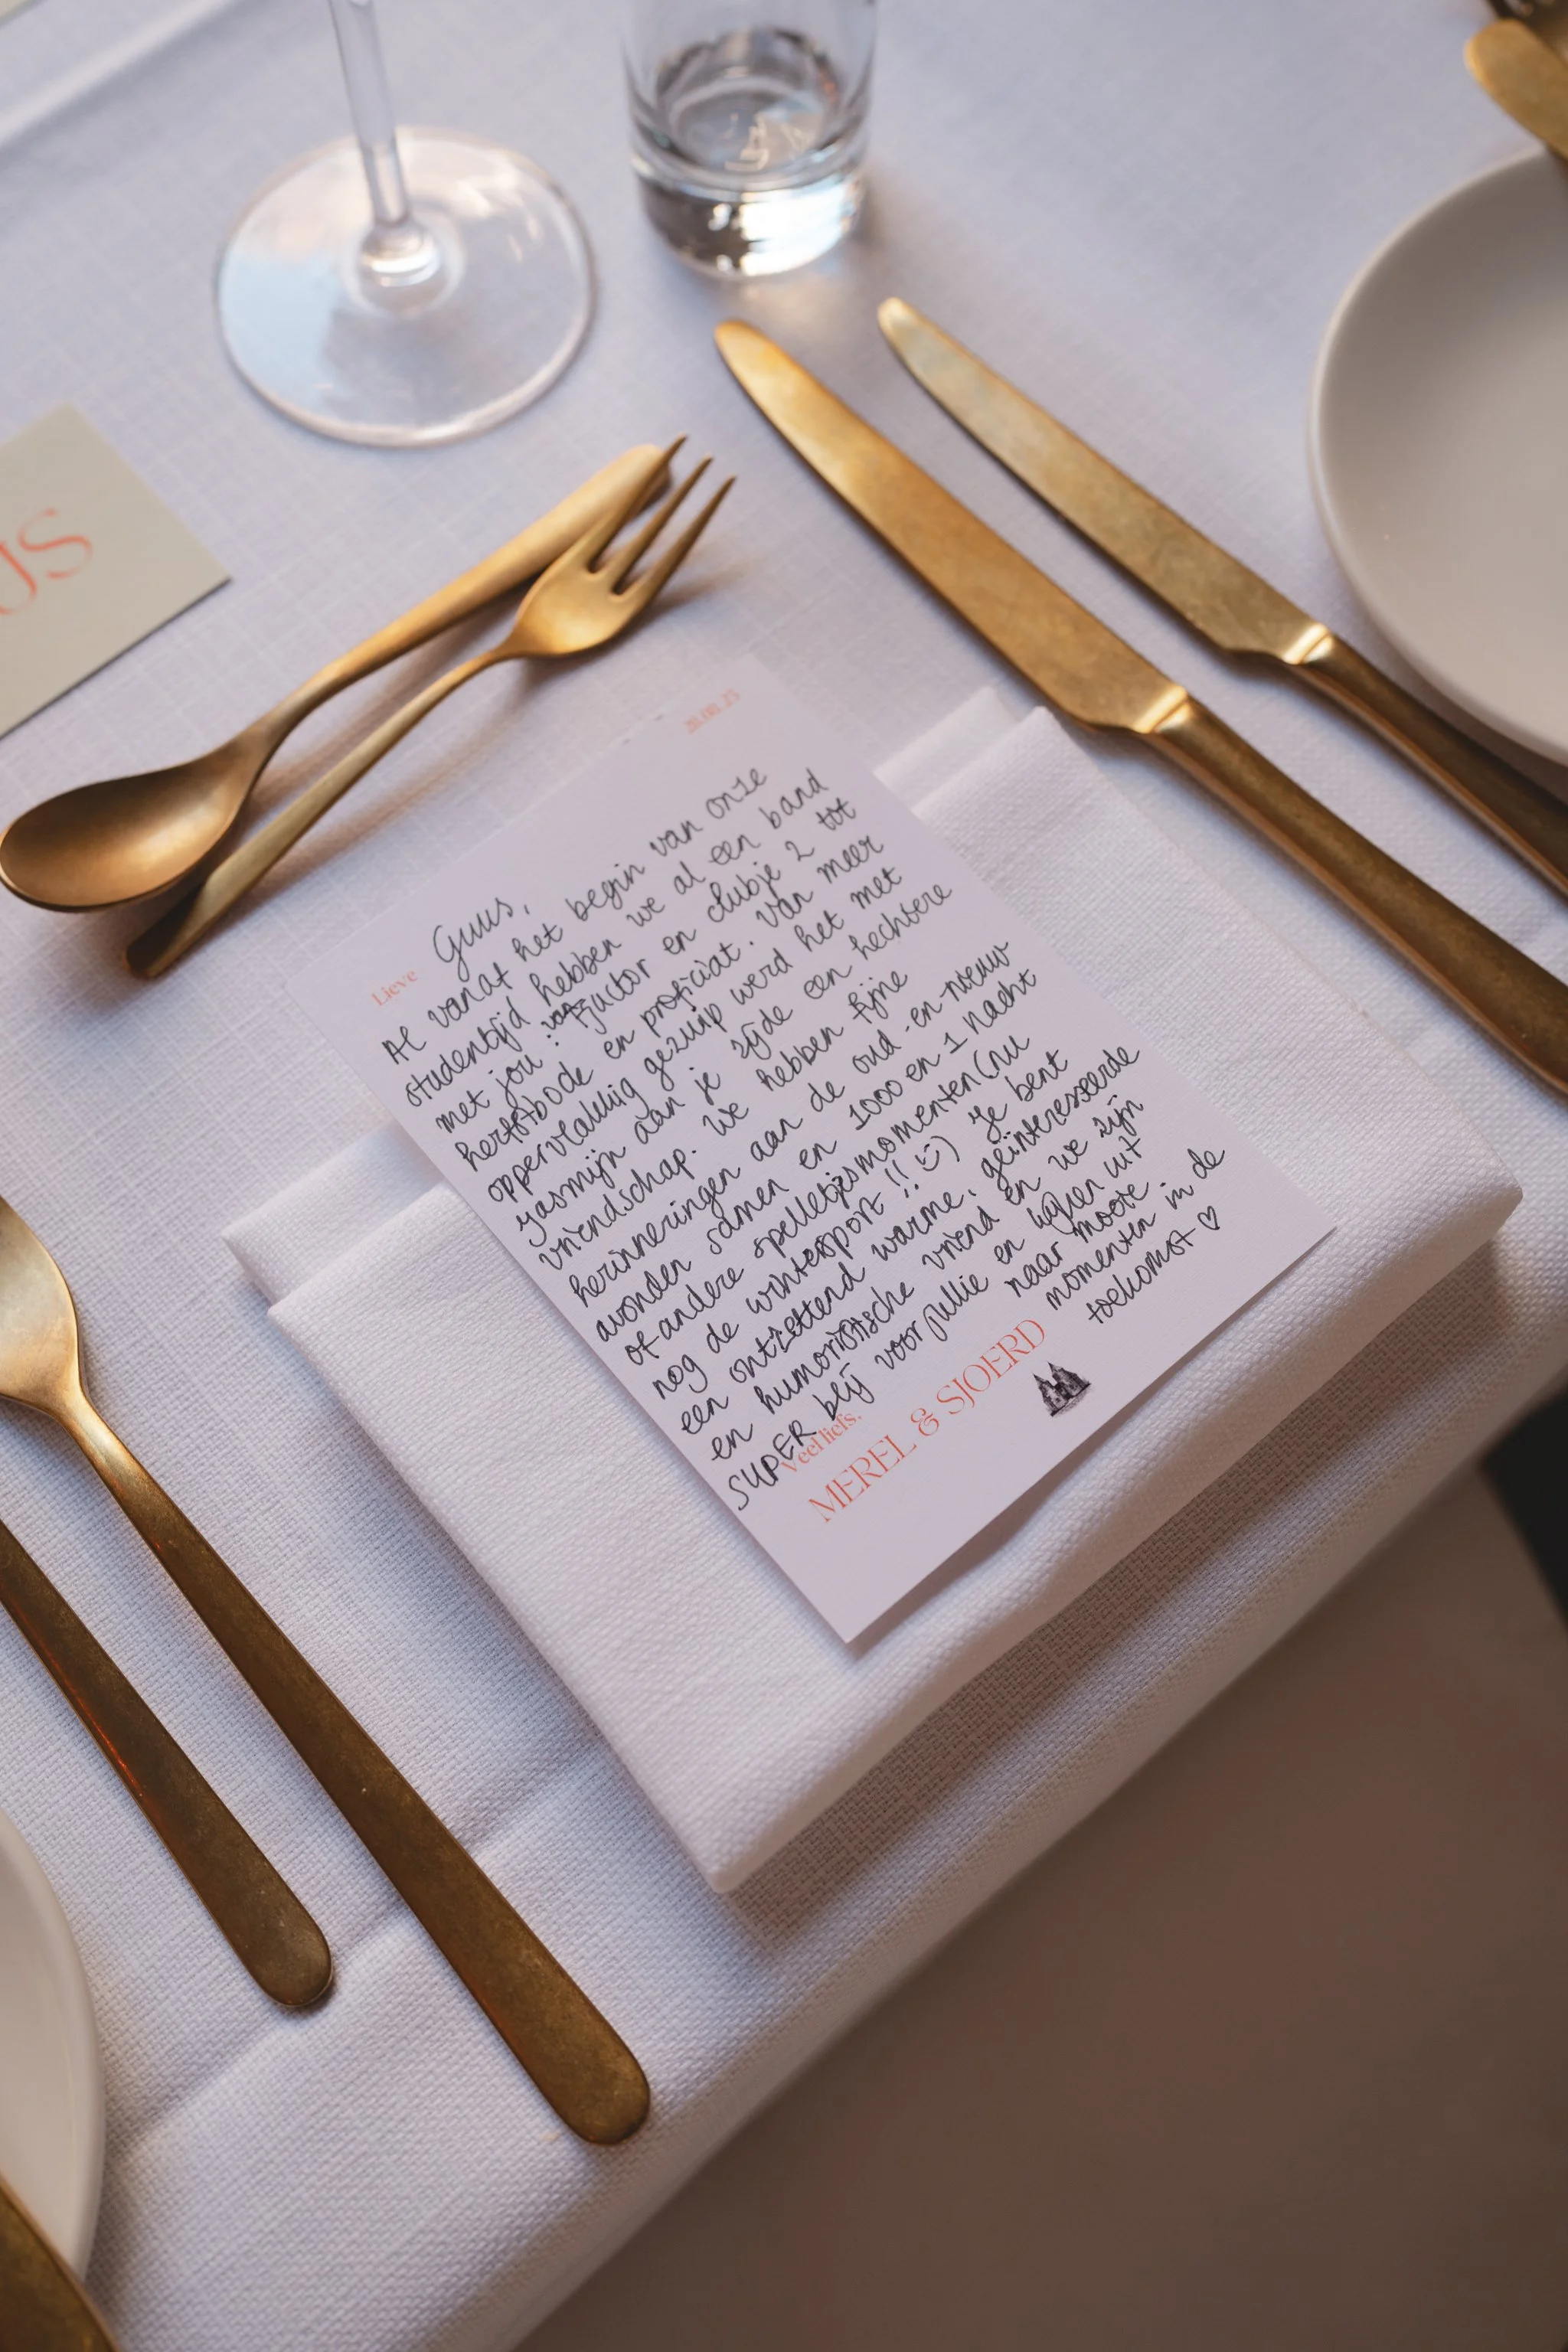 US
Lieve Guus,
Al vanaf het begin van onze
studentijd hebben we al een band
met jou: van Fjuctor en clubje 2 tot
herfstbode en proficiat. Van meer
oppervlakkig gezuip werd het met
Yasmijn aan je zijde een hechtere
vriendschap. We hebben fijne
herinneringen aan de oud-en-nieuw
avonden samen en 1000 en 1 nacht
of andere spelletjesmomenten (nu
nog de wintersport!! :) Je bent
een ontzettend warme, geïnteresseerde
en humoristische vriend en we zijn
SUPER blij voor jullie en kijken uit
naar mooie
momenten in de
toekomst ♡
Veel liefs,
MEREL & SJOERD